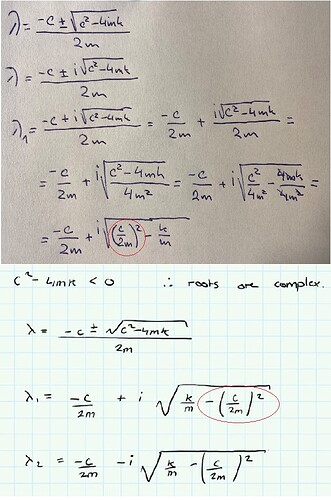 λ = (-c ± √(c² - 4mk)) / 2m
λ = (-c ± i√(c² - 4mk)) / 2m
λ₁ = (-c + i√(c² - 4mk)) / 2m = -c/2m + i√(c² - 4mk) / 2m =
= -c/2m + i√((c² - 4mk) / 4m²) = -c/2m + i√(c²/4m² - 4mk/4m²) =
= -c/2m + i√((c/2m)² - k/m)
c² - 4mk < 0 ∴ roots are complex.
λ = (-c ± √(c² - 4mk)) / 2m
λ₁ = -c/2m + i √(k/m - (c/2m)²)
λ₂ = -c/2m - i √(k/m - (c/2m)²)